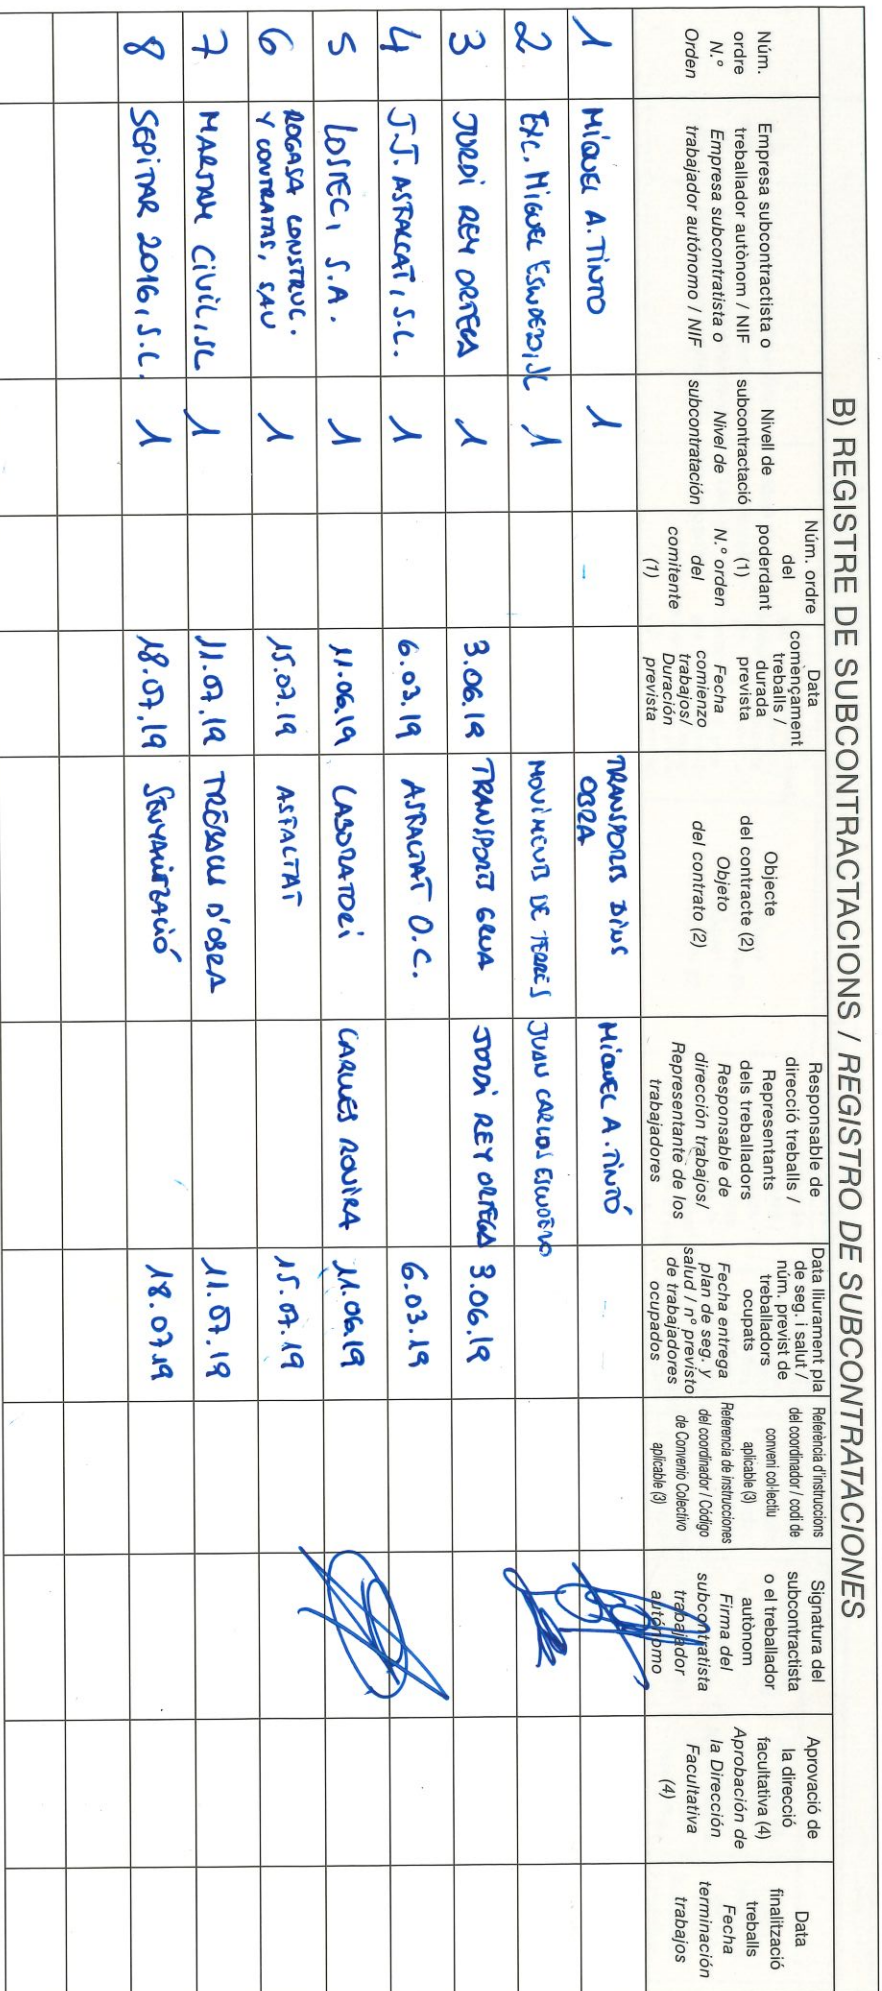 B) REGISTRE DE SUBCONTRACTACIONS / REGISTRO DE SUBCONTRATACIONES
Núm.
ordre
N.º
Orden
Empresa subcontractista o
treballador autònom / NIF
Empresa subcontratista o
trabajador autónomo / NIF
Nivell de
subcontractació
Nivel de
subcontratación
Núm. ordre
del
poderdant
(1)
N.º orden
del
comitente
(1)
Data
començament
treballs /
durada
prevista
Fecha
comienzo
trabajos/
Duración
prevista
Objecte
del contracte (2)
Objeto
del contrato (2)
Responsable de
direcció treballs /
Representants
dels treballadors
Responsable de
dirección trabajos/
Representante de los
trabajadores
Data lliurament pla
de seg. i salut /
núm. previst de
treballadors
ocupats
Fecha entrega
plan de seg. y
salud / nº previsto
de trabajadores
ocupados
Referència d'instruccions
del coordinador / codi de
conveni col·lectiu
aplicable (3)
Referencia de instrucciones
del coordinador / Código
de Convenio Colectivo
aplicable (3)
Signatura del
subcontractista
o el treballador
autònom
Firma del
subcontratista
trabajador
autónomo
Aprovació de
la direcció
facultativa (4)
Aprobación de
la Dirección
Facultativa
(4)
Data
finalització
treballs
Fecha
terminación
trabajos
1 MIQUEL A. TINTO 1 TRANSPORTS DINS
OBRA MIQUEL A. TINTÓ
2 EXC. MIGUEL ESCUDERO, SL 1 MOVIMENTS DE TERRES JUAN CARLOS ESCUDERO
3 JORDI REY ORTEGA 1 3.06.19 TRANSPORTS GRUA JORDI REY ORTEGA 3.06.19
4 J.J. ASFALCAT, S.L. 1 6.03.19 ASFALTAT O.C. 6.03.19
5 LOSTEC, S.A. 1 11.06.19 LABORATORI CARLES ROVIRA 11.06.19
6 ROGASA CONSTRUC.
Y CONTRATAS, SAU 1 15.07.19 ASFALTAT 15.07.19
7 MARTAM CIVIL, SL 1 11.07.19 TREBALLS D'OBRA 11.07.19
8 SEPITAR 2016, S.L. 1 18.07.19 SENYALITZACIÓ 18.07.19